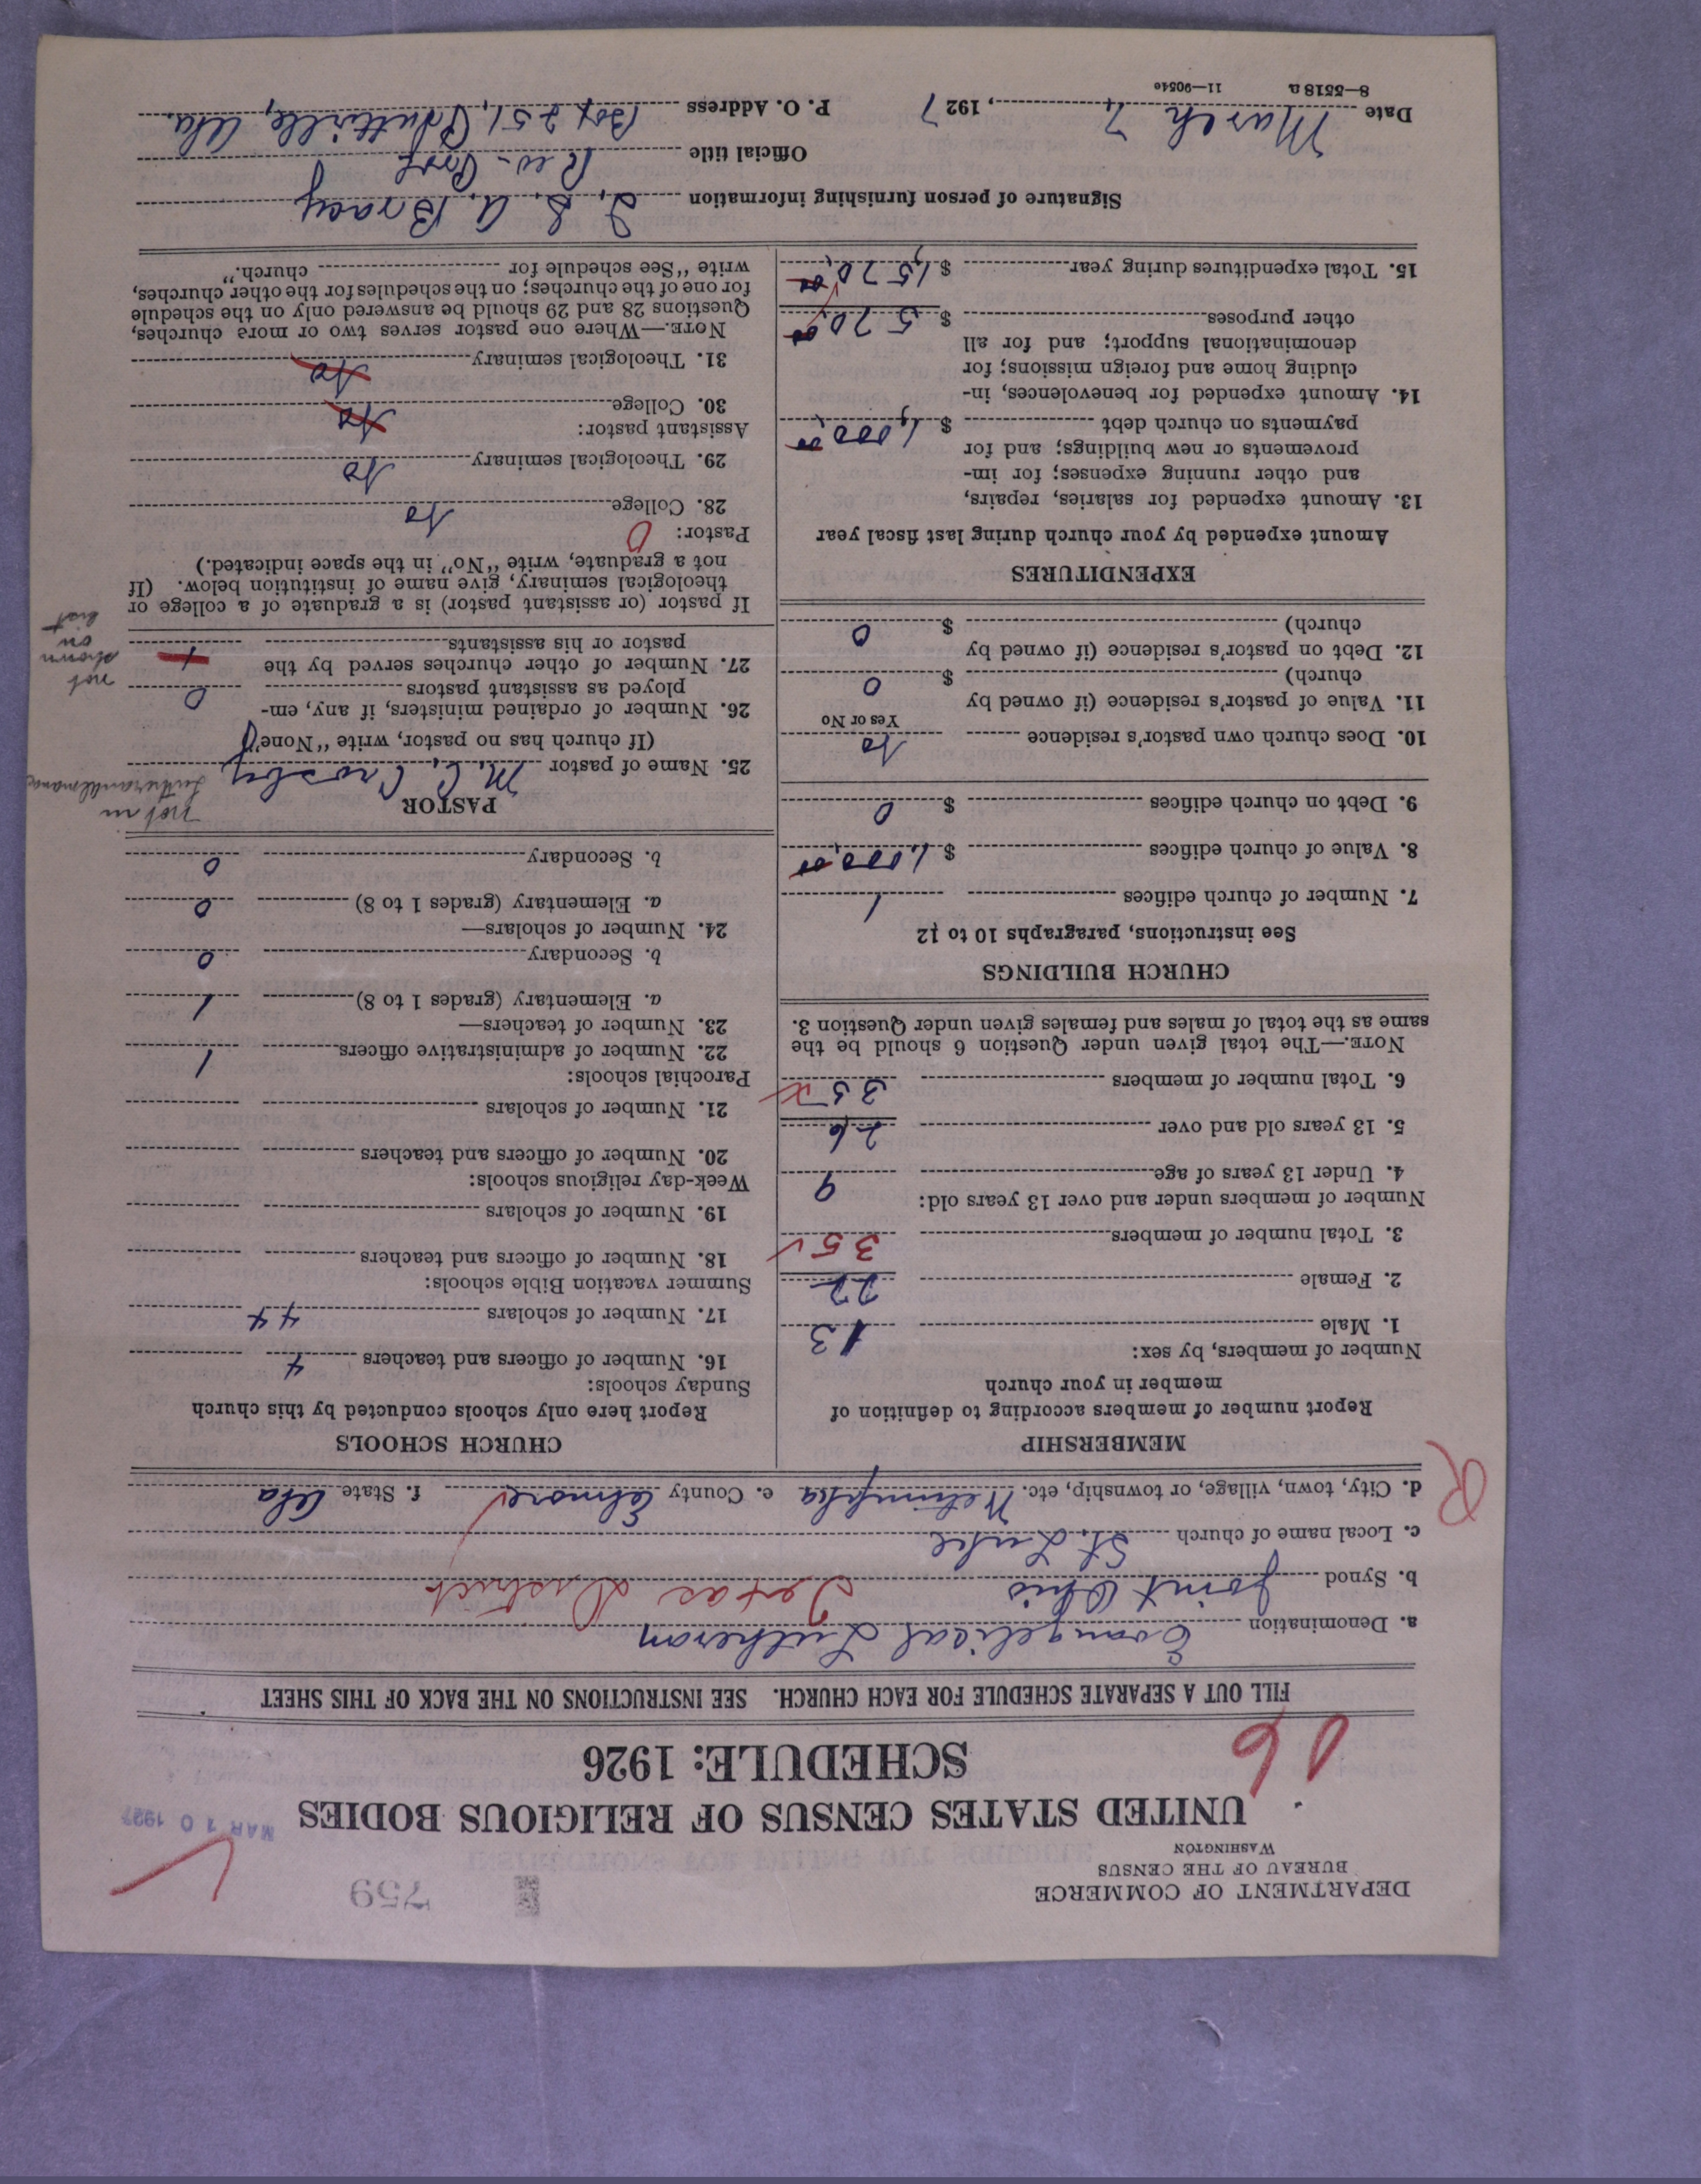 DEPARTMENT OF COMMERCE
BUREAU OF THE CENSUS
WASHINGTON
759
MAR 10 1927
UNITED STATES CENSUS OF RELIGIOUS BODIES
SCHEDULE: 1926
FILL OUT A SEPARATE SCHEDULE FOR EACH CHURCH. SEE INSTRUCTIONS ON THE BACK OF THIS SHEET
a. Denomination Evangelical Lutheran
b. Synod Joint Ohio Texas District
c. Local name of church St. Luke
d. City, town, village, or township, etc. e. County Elmore f. State Ala
R
MEMBERSHIP
Report number of members according to definition of
member in your church
Number of members, by sex:
1. Male 13
2. Female 22
3. Total number of members 35
Number of members under and over 13 years old:
4. Under 13 years of age 9
5. 13 years old and over 26
6. Total number of members 35
NOTE.—The total given under Question 6 should be the
same as the total of males and females given under Question 3.
CHURCH BUILDINGS
See instructions, paragraphs 10 to 12
7. Number of church edifices 1
8. Value of church edifices $ 1,000.00
9. Debt on church edifices $ 0
10. Does church own pastor's residence No
Yes or No
11. Value of pastor's residence (if owned by
church) $ 0
12. Debt on pastor's residence (if owned by
church) $ 0
EXPENDITURES
Amount expended by your church during last fiscal year
13. Amount expended for salaries, repairs,
and other running expenses; for im-
provements or new buildings; and for
payments on church debt $ 1,000.00
14. Amount expended for benevolences, in-
cluding home and foreign missions; for
denominational support; and for all
other purposes $ 570.00
15. Total expenditures during year $ 1,570.00
CHURCH SCHOOLS
Report here only schools conducted by this church
Sunday schools:
16. Number of officers and teachers 4
17. Number of scholars 44
Summer vacation Bible schools:
18. Number of officers and teachers
19. Number of scholars
Week-day religious schools:
20. Number of officers and teachers
21. Number of scholars
Parochial schools:
22. Number of administrative officers 1
23. Number of teachers—
a. Elementary (grades 1 to 8) 1
b. Secondary 0
24. Number of scholars—
a. Elementary (grades 1 to 8) 0
b. Secondary 0
PASTOR
not in
25. Name of pastor M. C. Crosby
(If church has no pastor, write "None")
26. Number of ordained ministers, if any, em-
ployed as assistant pastors 0
27. Number of other churches served by the
pastor or his assistants
not
shown
on
list
If pastor (or assistant pastor) is a graduate of a college or
theological seminary, give name of institution below. (If
not a graduate, write "No" in the space indicated.)
Pastor: 0
28. College No
29. Theological seminary No
Assistant pastor:
30. College No
31. Theological seminary No
NOTE.—Where one pastor serves two or more churches,
Questions 28 and 29 should be answered only on the schedule
for one of the churches; on the schedules for the other churches,
write "See schedule for church."
Signature of person furnishing information A. Bracy
Official title Rev.
Date March 7, 1927 P. O. Address Box 251, Ala.
8—5518a 11—9054c